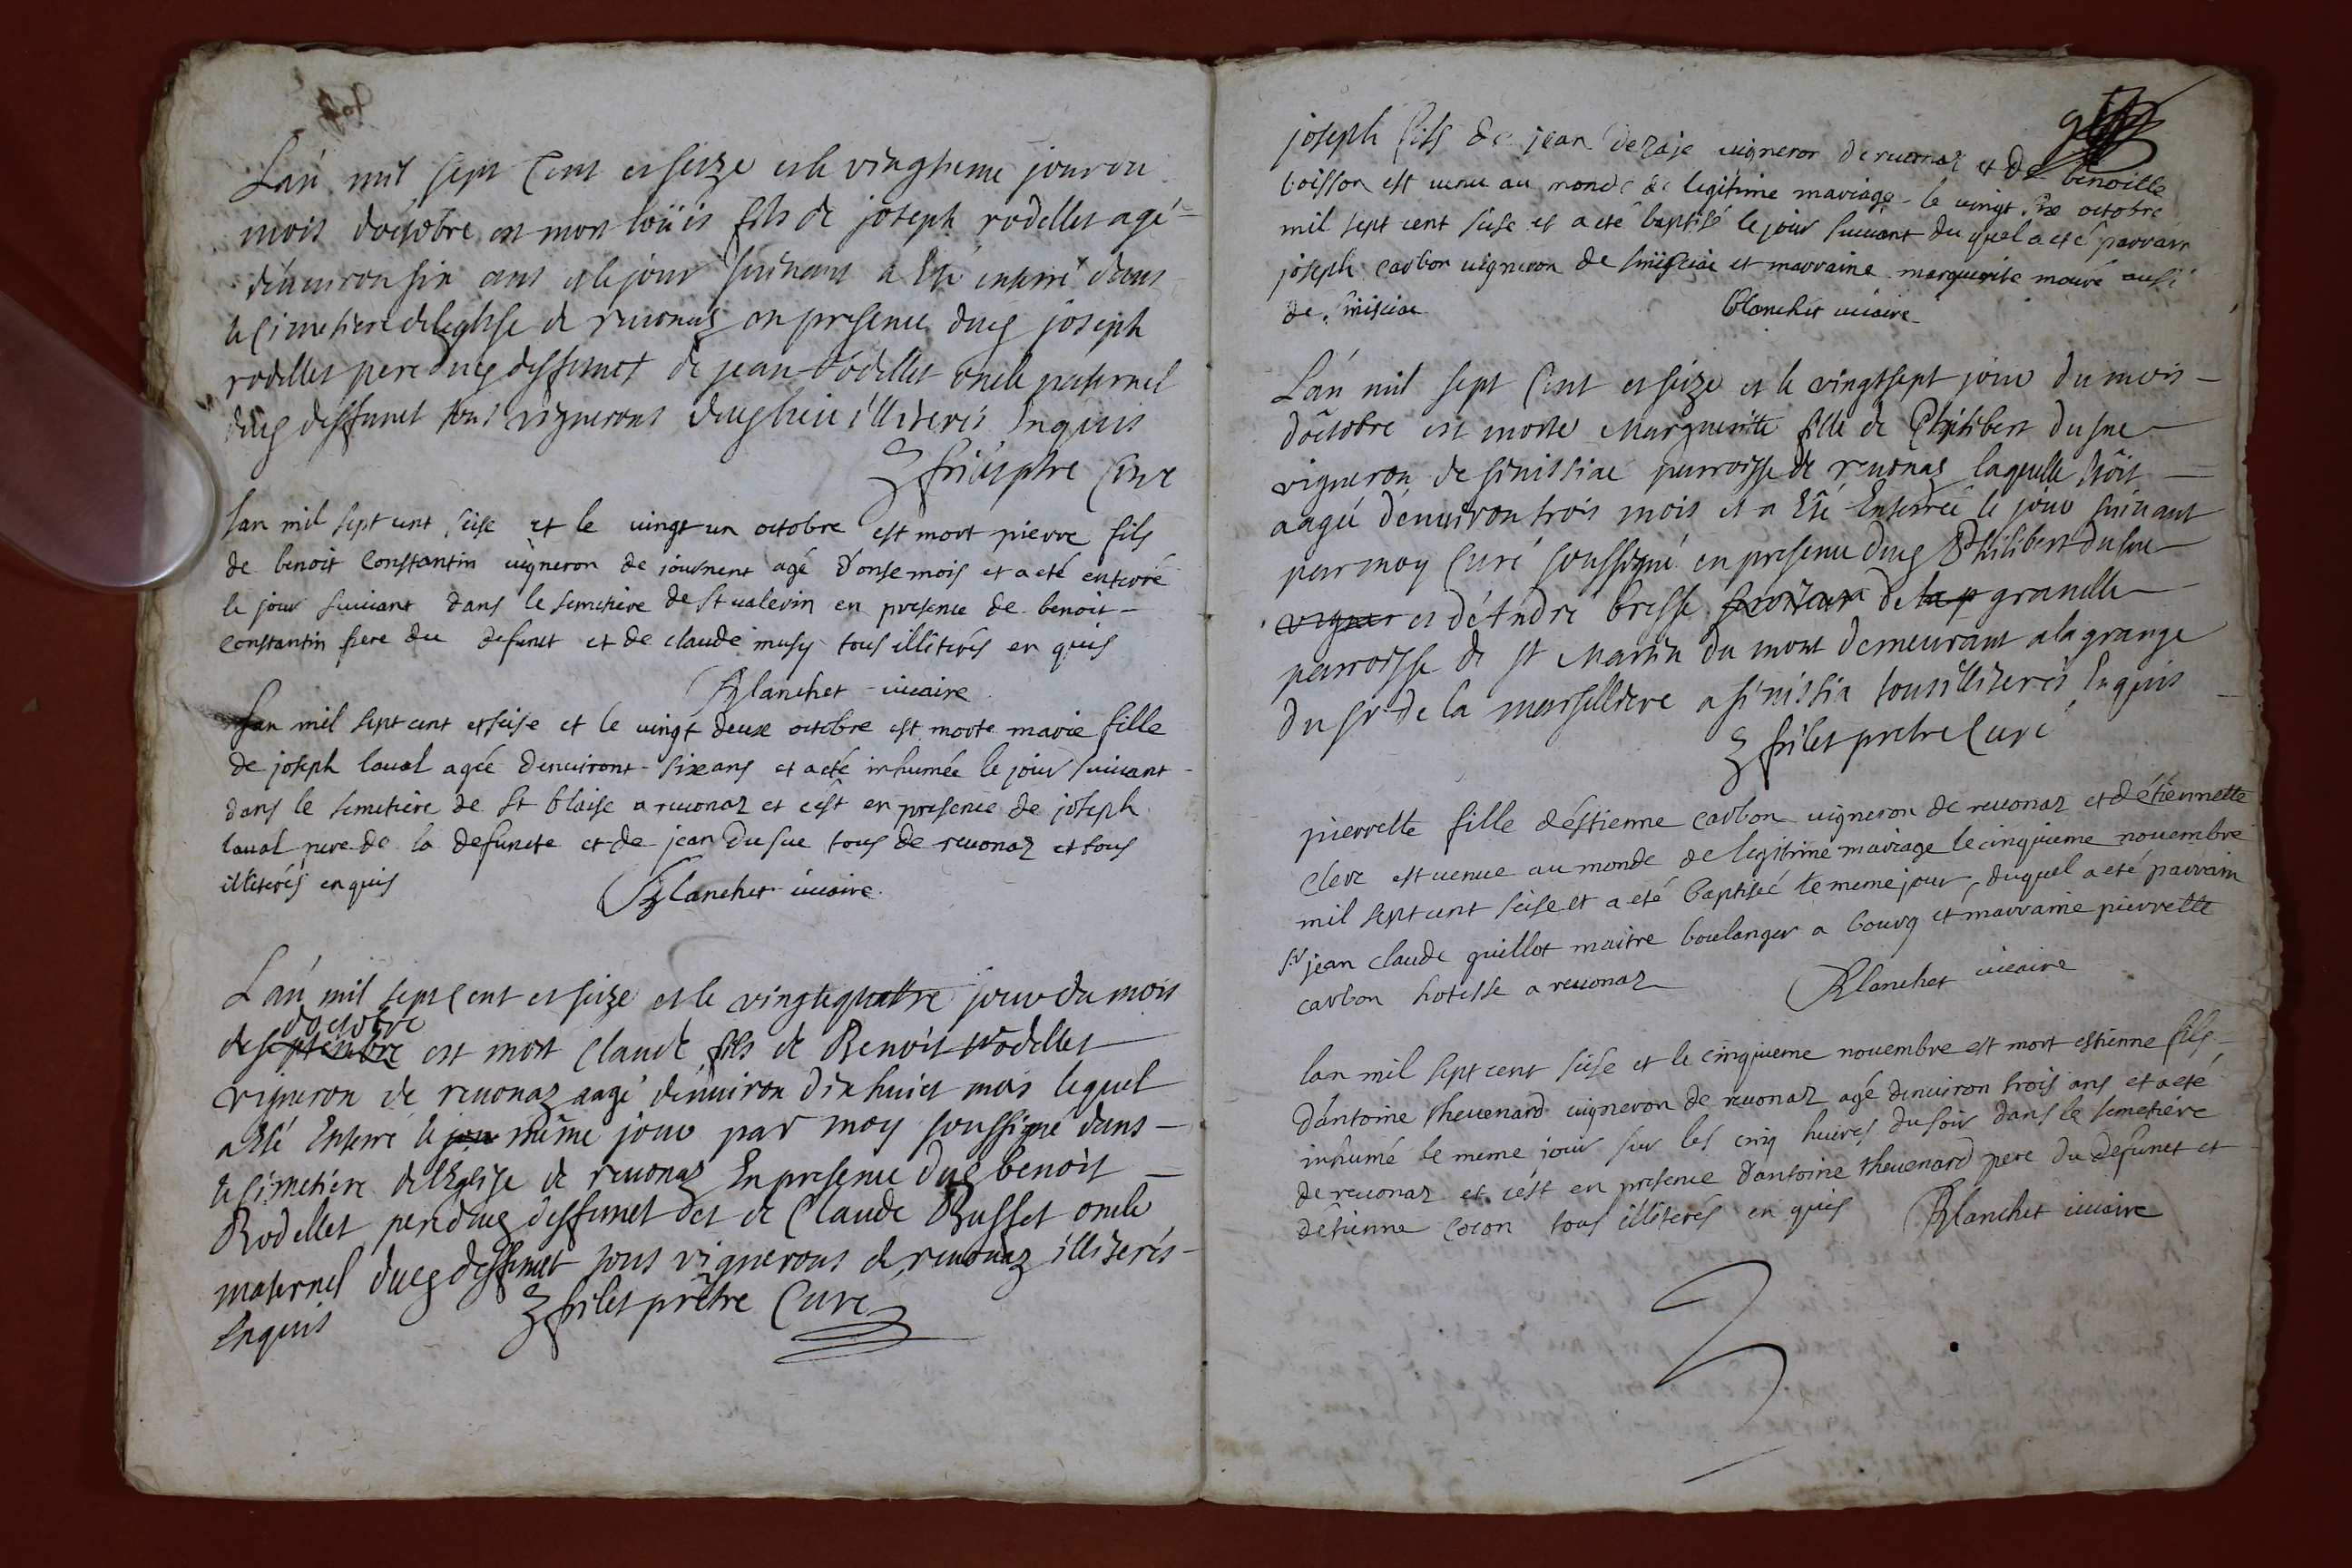 L'an mil sept Cent et seize et le vingtieme jour du
mois d'octobre est mort loüis fils de joseph rodellet agé
d'environ six ans et le jour suivant a Esté enterré dans
le Cimetiere de leglise de reuonas en presence dud joseph
rodellet pere dud deffunct de jean rodellet oncle paternel
dud deffunct tous vignerons dud lieu illiterés Enquis
prestre Curé
lan mil sept cent seise et le uingt un octobre est mort pierre fils
de benoit Constantin uigneron de journent agé d'onse mois et a eté enterré
le jour suiuant dans le semetiere de st ualerin en presence de benoit
Constantin frere du defunct et de claude musy tous illiterés en quis
Blanchet uicaire
Lan mil sept cent et seise et le uingt deux octobre est morte marie fille
de joseph laual agée d'enuiront six ans et a eté inhumée le jour suiuant
dans le semetiere de St blaise a reuonaz et c'est en presence de joseph
laual pere de la defuncte et de jean dusue tous de reuonaz et tous
illiterés enquis Blanchet uicaire
L'an mil sept Cent et seize et le vingtequattre jour du mois
d'octobre
de septembre est mort Claude fils de Benoit rodellet
vigneron de reuonaz aagé d'enuiron dixhuict mois lequel
a Esté Enterré le jour même jour par moy soussigné dans
le Cimetiere de lEglise de reuonaz En presence dud benoit
Rodellet pere dud deffunct et de Claude Busset oncle
maternel dud deffunct tous vignerons de reuonaz illiterés
Enquis frilet prêtre Curé
joseph fils de jean uigneron de reuonaz et de benoille
boisson est uenu au monde de legitime mariage le uingt six octobre
mil sept cent seise et a eté baptisé le jour suiuant du quel a eté parrain
joseph carbon uigneron de et marraine marguerite mouré aussi
de sinisciac Blanchet uicaire
L'an mil sept Cent et seize et le vingtsept jour du mois
d'octobre est morte Marguerite fille de Philibert dusue
vigneron de sinissiac parroisse de reuonas laquelle Etoit
aagée d'enuiron trois mois et a Eté Enterrée le jour suiuant
par moy Curé soussigné en presence dud Philibert dusue
vigner et d'Andre bresse de la p granelle
parroisse de st Martin du mont demeurant a la grange
du sr de la marselliere a sinissia tous illiterés Enquis
frilet pretre Curé
pierrette fille d'éstienne carbon uigneron de reuonaz et d'étiennette
Clerc est uenue au monde de legitime mariage le cinquieme nouembre
mil sept cent seise et a eté baptisée le meme jour, duquel a eté parrain
sr jean claude guillot maitre boulanger a bourg et marraine pierrette
carbon hotesse a reuonaz Blanchet uicaire
lan mil sept cent seise et le cinquieme nouembre est mort estienne fils
d'antoine theuenard uigneron de reuonaz agé d'enuiron trois ans et a eté
inhumé le meme jour sur les cinq heures du soir dans le semetiére
de reuonaz et c'est en presence d'antoine theuenard pere du defunct et
détienne cocon tous illiterés en quis Blanchet uicaire